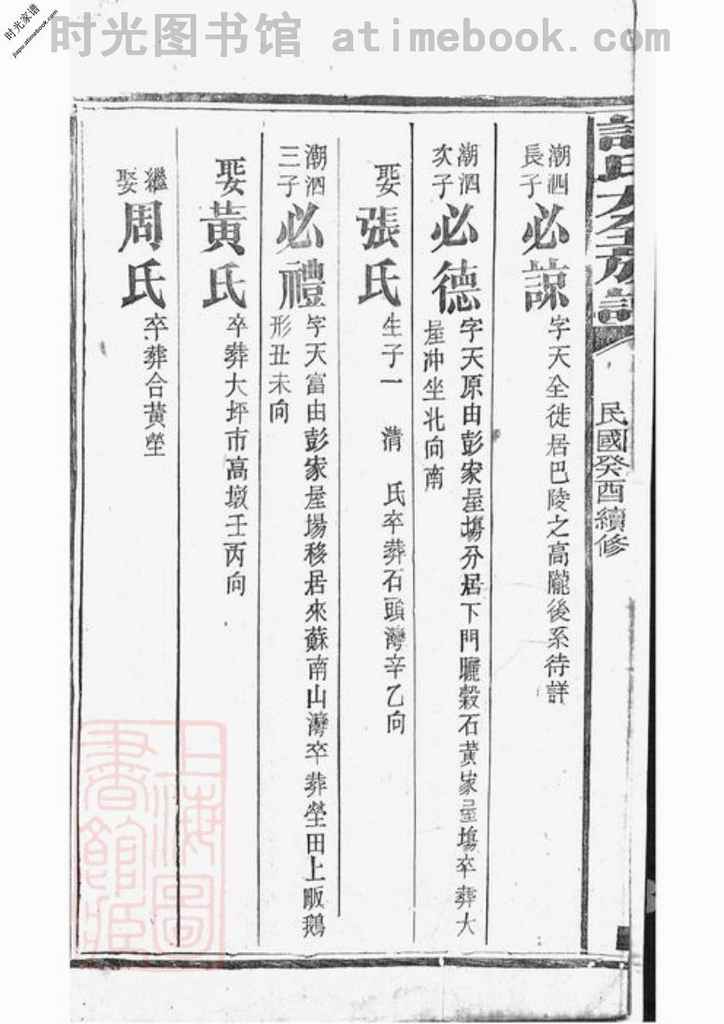 时光图书馆 atimebook.com
时光家谱
jiapu.atimebook.com
民國癸酉續修
潮泗
長子
必諒
字天全徙居巴陵之高隴後系待詳
潮泗
次子
必德
字天原由彭家屋塲分居下門曬穀石黃家屋塲卒葬大
屋冲坐北向南
娶張氏
生子一 清 氏卒葬石頭灣辛乙向
潮泗
三子
必禮
字天富由彭家屋場移居來蘇南山灣卒葬塋田上畈鵝
形丑未向
娶黃氏
卒葬大坪市高墩壬丙向
繼
娶
周氏
卒葬合黃塋
上海圖
書館藏